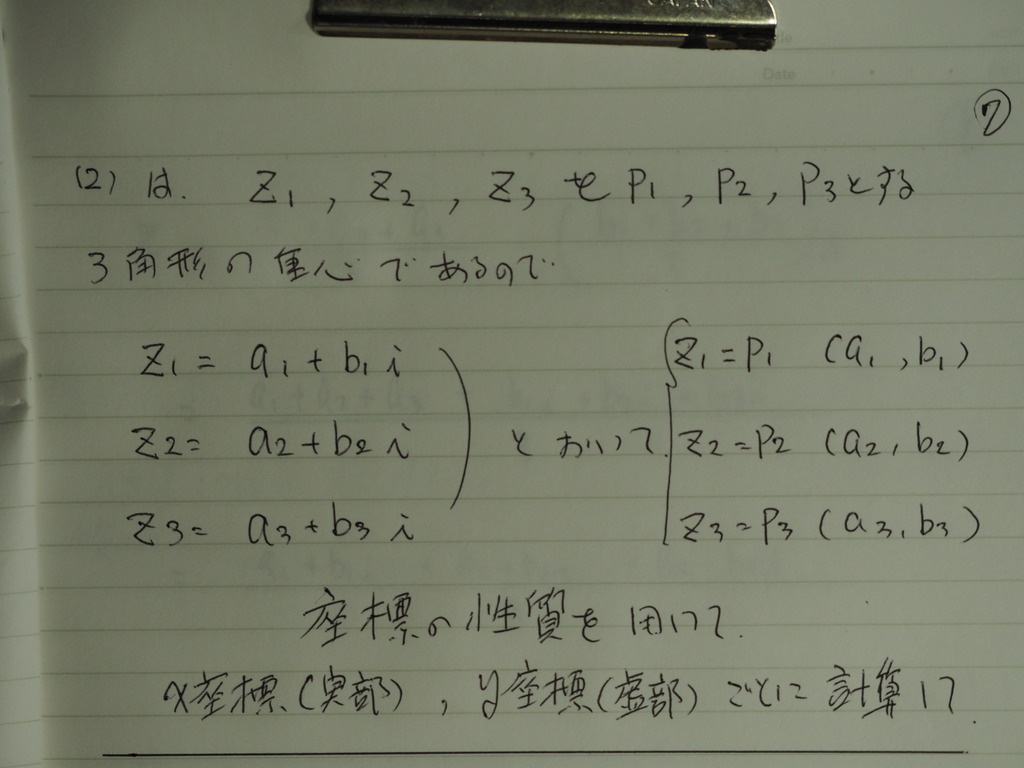 Date
⑦
(2) は. Z1, Z2, Z3 を P1, P2, P3とする
3角形の重心であるので
Z1 = a1 + b1 i
Z2 = a2 + b2 i
Z3 = a3 + b3 i
とおいて
Z1 = P1 (a1, b1)
Z2 = P2 (a2, b2)
Z3 = P3 (a3, b3)
座標の性質を用いて.
x座標(実部), y座標(虚部)ごとに計算して